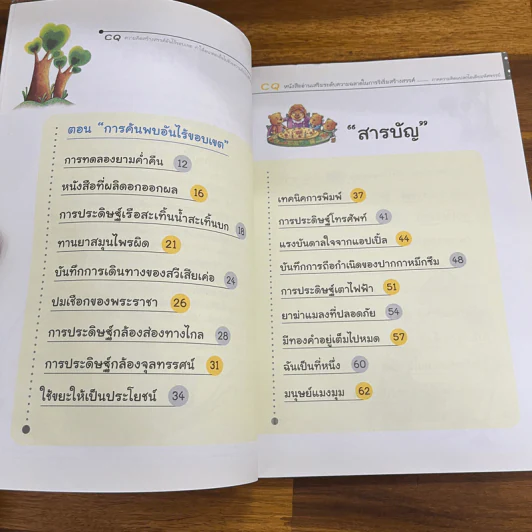 CQ
ตอน "การค้นพบอันไร้ขอบเขต"
การทดลองยามค่ำคืน 12
หนังสือที่ผลิดอกออกผล 16
การประดิษฐ์เรือสะเทิ้นน้ำสะเทิ้นบก 18
ทานยาสมุนไพรผิด 21
บันทึกการเดินทางของสวีเสียเค่อ 24
ปมเชือกของพระราชา 26
การประดิษฐ์กล้องส่องทางไกล 28
การประดิษฐ์กล้องจุลทรรศน์ 31
ใช้ขยะให้เป็นประโยชน์ 34
CQ หนังสืออ่านเสริมระดับความฉลาดในการริเริ่มสร้างสรรค์
"สารบัญ"
เทคนิคการพิมพ์ 37
การประดิษฐ์โทรศัพท์ 41
แรงบันดาลใจจากแอปเปิ้ล 44
บันทึกการถือกำเนิดของปากกาหมึกซึม 48
การประดิษฐ์เตาไฟฟ้า 51
ยาฆ่าแมลงที่ปลอดภัย 54
มีทองคำอยู่เต็มไปหมด 57
ฉันเป็นที่หนึ่ง 60
มนุษย์แมงมุม 62